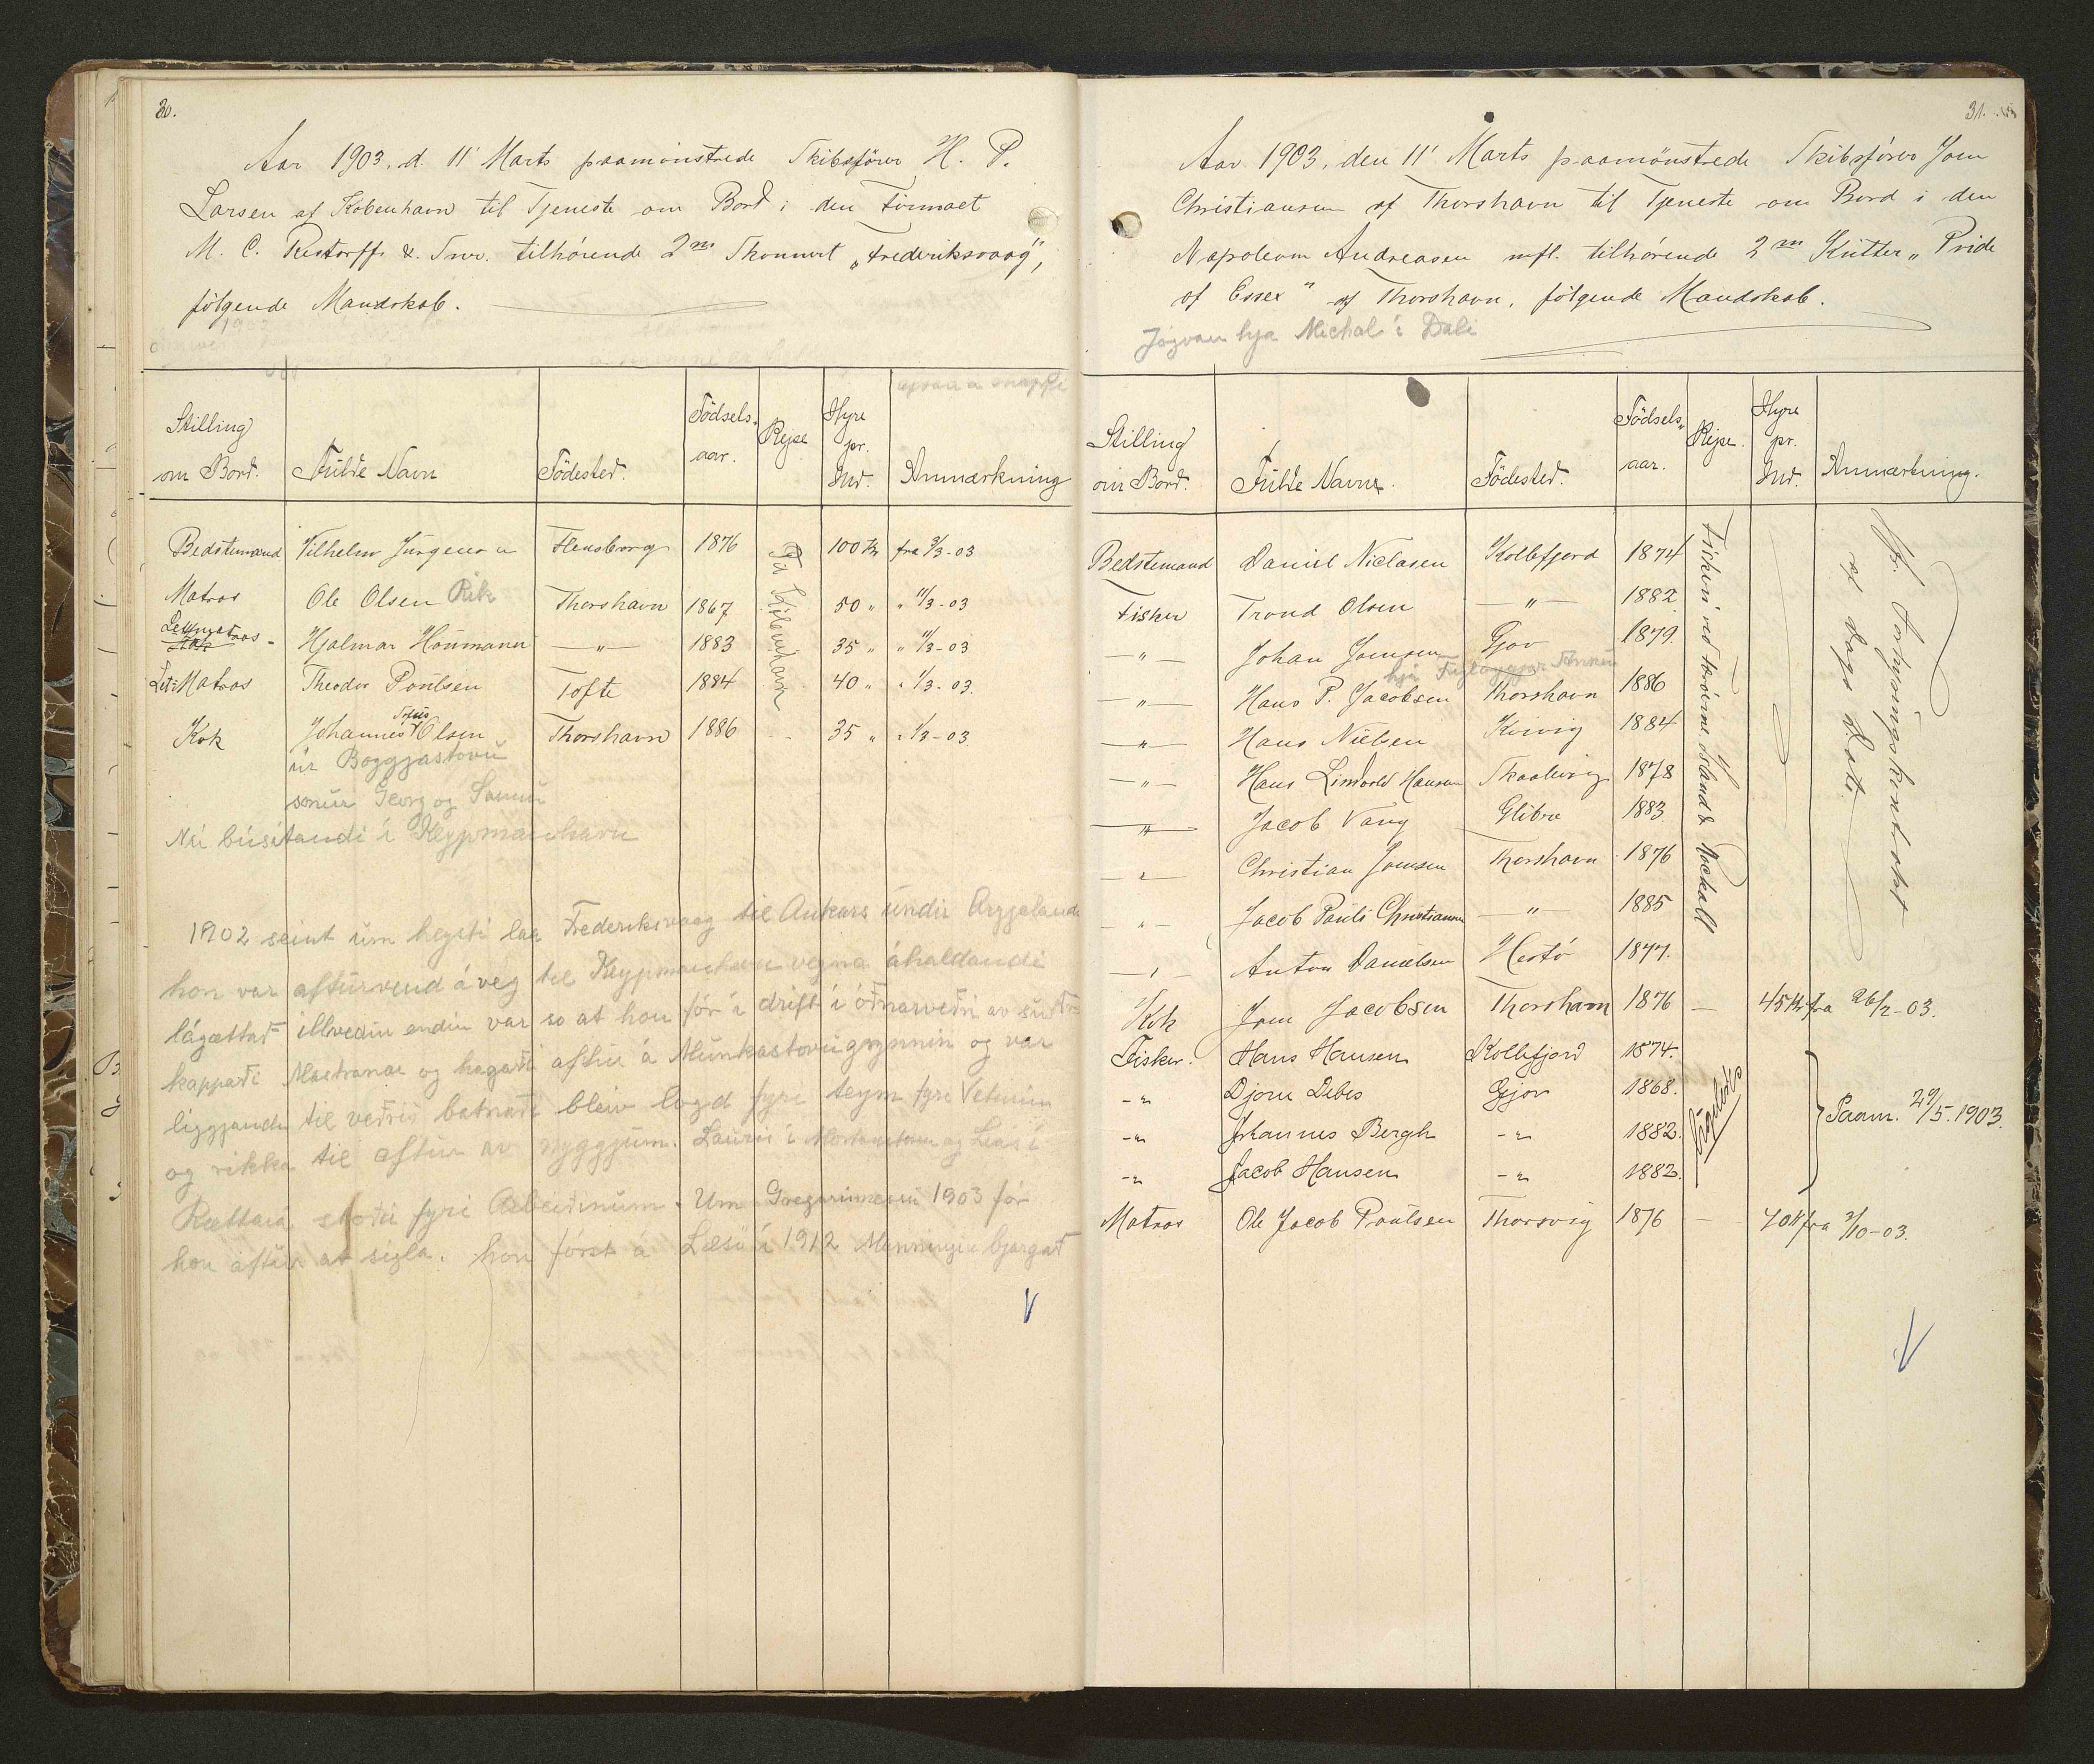 30.
Aar 1903, d. 11' Marts paamönstrede Skibsförer H. P.
Larsen af Köbenhavn til Tjeneste om Bord i den Firmaet
M. C. Restorff & Snr. tilhörende 2ms Skonnert „Frederiksvaag",
fölgende Mandskab.
Stilling om Bord. Fulde Navn Födested. Födsels-aar. Rejse Hyre pr. Md. Anmærkning
Bedstemand Vilhelm Jürgensen Flensborg 1876 100 Kr fra 3/3-03
Matros Ole Olsen Rik Thorshavn 1867 50 " " 11/3-03
Letmatros Hjalmar Houmann — " — 1883 35 " " 11/3-03
Let: Matros Theodor Poulsen Tofte 1884 40 " " 1/3-03.
Kok Johannes Olsen Thorshavn 1886 35 " " 1/3-03.
Til Kjöbenhavn
úr Boggjastovu
sonur Georg og Sannu
Nú búsitandi í Keypmannhavn
1902 seint um heysti laa Frederiksvaag til Ankars undir Argjalandi
hon var afturvend á veg til Keypmanhavn vegna áhaldandi
lágættað illveður endin var so at hon fór í drift í óðnarveðri av
kappaði Mastranar og hagaði aftur á Munkastovugrynnin og var
liggjandi til veðrið batnaði bleiv logd fyri teym fyri Veturin
og rikka til aftur av nyggjum. Laurus í og
stóðu fyri Arbeidinum. Um Gregoriimessu 1903 fór
hon aftur at sigla. hon fórst á Læsö í 1912 Manningin bjargað
31.
Aar 1903, den 11' Marts paamönstrede Skibsförer Joen
Christiansen af Thorshavn til Tjeneste om Bord i den
Napoleon Andreasen mfl. tilhörende 2m Kutter „Pride
of Essex" af Thorshavn, fölgende Mandskab.
Jógvan hja Michal í Dali
Stilling om Bord. Fulde Navne. Födested. Födsels-aar. Rejse. Hyre pr. Md. Anmærkning.
Bedstemand Daniel Niclasen Kollefjord 1874
Fisker Trond Olsen — " — 1882
— " — Johan Joensen Gjov 1879.
— " — Hans P. Jacobsen Thorshavn 1886
— " — Hans Nielsen Kvivig 1884
— " — Hans Lindvold Hansen Skaalevig 1878
— " — Jacob Vang Glibre 1883
— " — Christian Joensen Thorshavn 1876
— " — Jacob Pauli Christiansen — " — 1885
— " — Anton Danielsen Hestö 1877.
Kok Joen Jacobsen Thorshavn 1876 — 45 Kr fra 26/2-03.
Fisker. Hans Hansen Kollefjord 1874.
-"- Djoni Debes Gjov 1868.
-"- Johannes Bergh -"- 1882.
-"- Jacob Hansen -"- 1882.
Matros Ole Jacob Poulsen Thorsvig 1876 — 70 Kr fra 2/10-03.
Fiskeri ved Færöerne Island & Rockall
Jfr. Forhyringskontrakt
af Dags Dato.
Paam. 29/5. 1903.